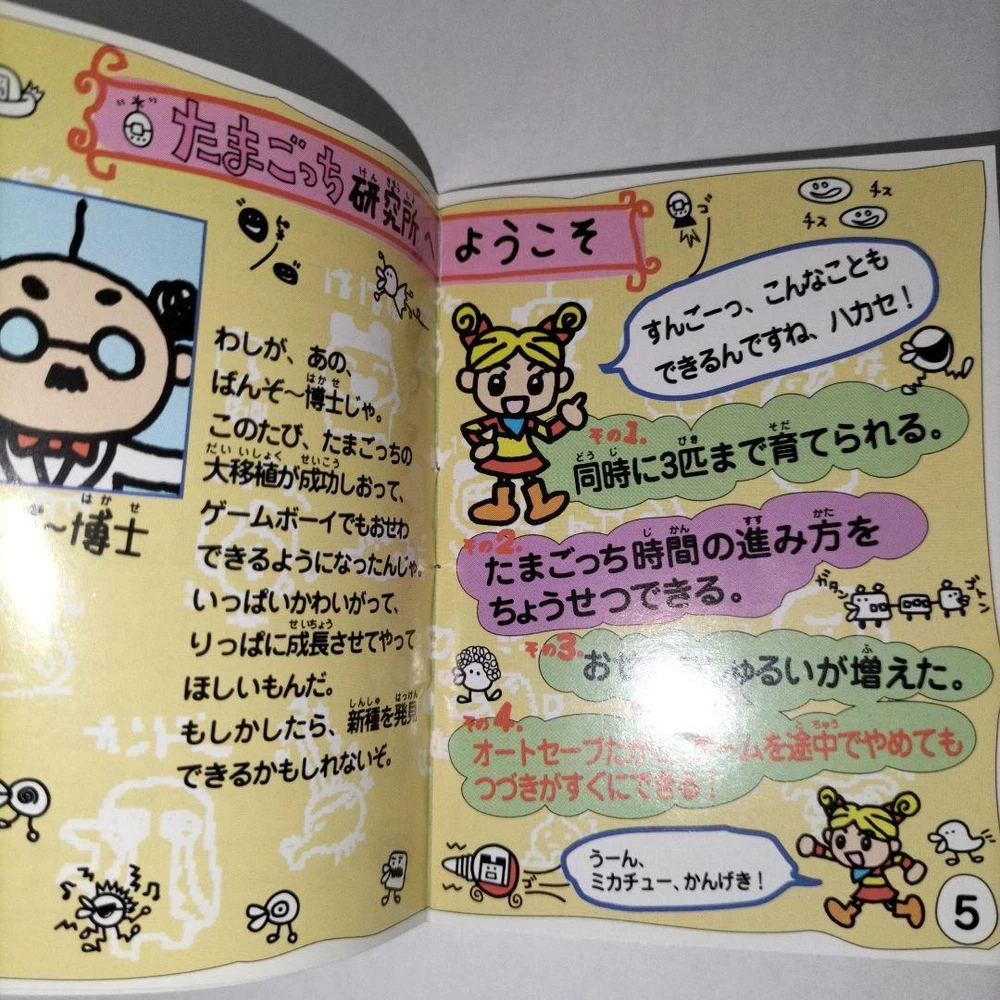 たまごっち研究所へ
ようこそ
わしが、あの、
ばんぞ～博士じゃ。
このたび、たまごっちの
大移植が成功しおって、
ゲームボーイでもおせわ
できるようになったんじゃ。
いっぱいかわいがって、
りっぱに成長させてやって
ほしいもんだ。
もしかしたら、新種を発見
できるかもしれないぞ。
～博士
チス
チス
ゴ
すんごーっ、こんなことも
できるんですね、ハカセ！
その1.
同時に3匹まで育てられる。
その2.
たまごっち時間の進み方を
ちょうせつできる。
ガタン
ゴトン
その3.
お ゅるいが増えた。
その4.
オートセーブだか ームを途中でやめても
つづきがすぐにできる！
うーん、
ミカチュー、かんげき！
ゴ
5